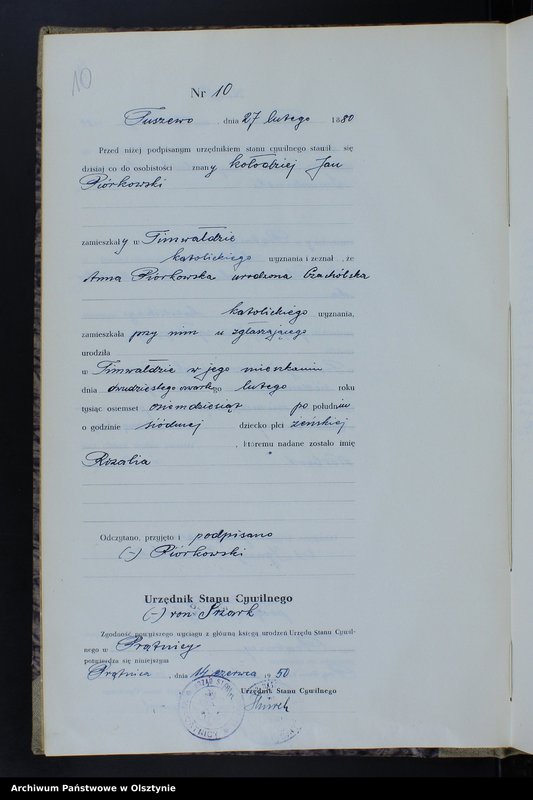 10
Nr 10
Tuszewo, dnia 27 lutego 1880
Przed niżej podpisanym urzędnikiem stanu cywilnego stawił się
dzisiaj co do osobistości znany kołodziej Jan
Piórkowski
zamieszkały w Tinwałdzie
katolickiego wyznania i zeznał, że
Anna Piórkowska urodzona Czachólska
katolickiego wyznania,
zamieszkała przy nim u zgłaszającego
urodziła
w Tinwałdzie w jego mieszkaniu
dnia dwudziestego czwartego lutego roku
tysiąc osiemset osiemdziesiąt po południu
o godzinie siódmej dziecko płci żeńskiej
, któremu nadane zostało imię
Rozalia
Odczytano, przyjęto i podpisano
(-) Piórkowski
Urzędnik Stanu Cywilnego
(-) von
Zgodność powyższego wyciągu z główną księgą urodzeń Urzędu Stanu Cywil-
nego w Prątnicy
potwierdza się niniejszym
Prątnica, dnia 14 czerwca 1950
Urzędnik Stanu Cywilnego
Archiwum Państwowe w Olsztynie